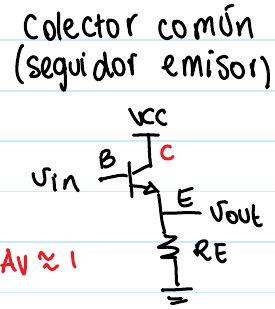 Colector común
(seguidor emisor)
VCC
C
B
Vin
E
Vout
RE
Av ≈ 1